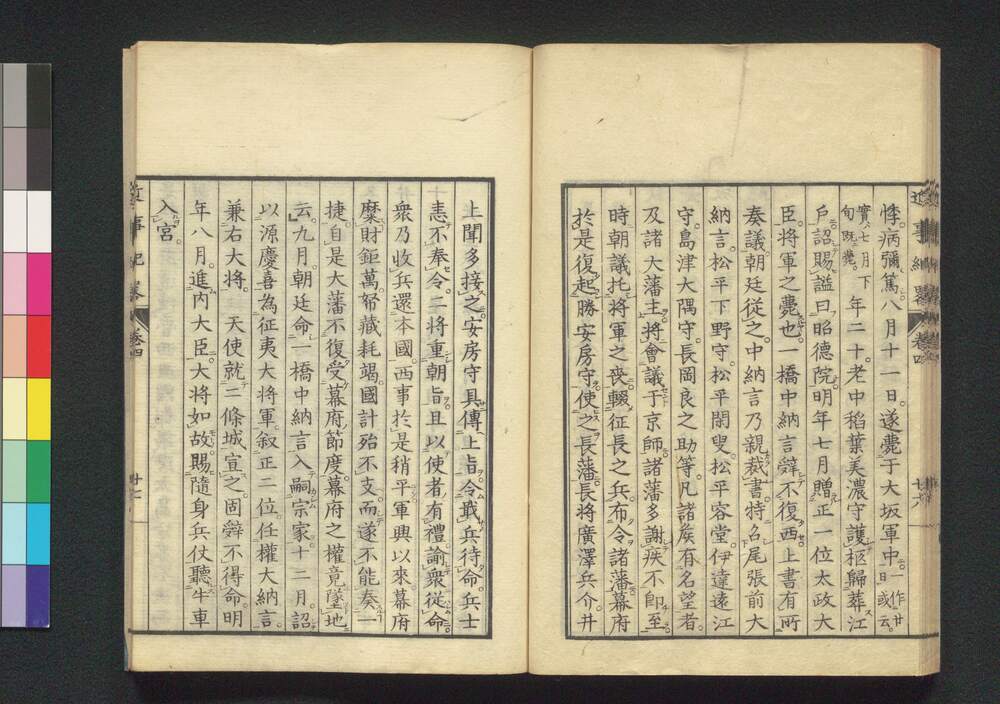 悸。病彌篤。八月十一日。遂薨于大坂軍中。一作廿日或云。
實七月下旬既薨。年二十。老中稻葉美濃守護柩歸葬江
戶。詔賜謚曰昭德院。明年七月。贈正一位太政大
臣。將軍之薨也。一橋中納言辭不復西。上書有所
奏議。朝廷從之。中納言乃親裁書。特召尾張前大
納言。松平下野守。松平閑叟。松平容堂。伊達遠江
守。島津大隅守。長岡良之助等。凡諸侯有名望者。
及諸大藩主。將會議于京師。諸藩多謝疾不卽至。
時朝議托將軍之喪。輟征長之兵。布令諸藩。幕府
於是復起勝安房守。使之長藩。長將廣澤兵介。井
上聞多接之。安房守具傳上旨。令戢兵待命。兵士
恚不奉令。二將重朝旨。且以使者有禮。諭衆從命。
衆乃收兵還本國。西事於是稍平。軍興以來。幕府
糜財鉅萬。帑藏耗竭。國計殆不支。而遂不能奏一
捷。自是大藩不復受幕府節度。幕府之權竟墜地
云。九月。朝廷命一橋中納言入嗣宗家。十二月。詔
以源慶喜為征夷大將軍。叙正二位。任權大納言。
兼右大將。 天使就二條城宣之。固辭不得命。明
年八月。進內大臣。大將如故。賜隨身兵仗。聽牛車
入宮。
近事紀略
卷四